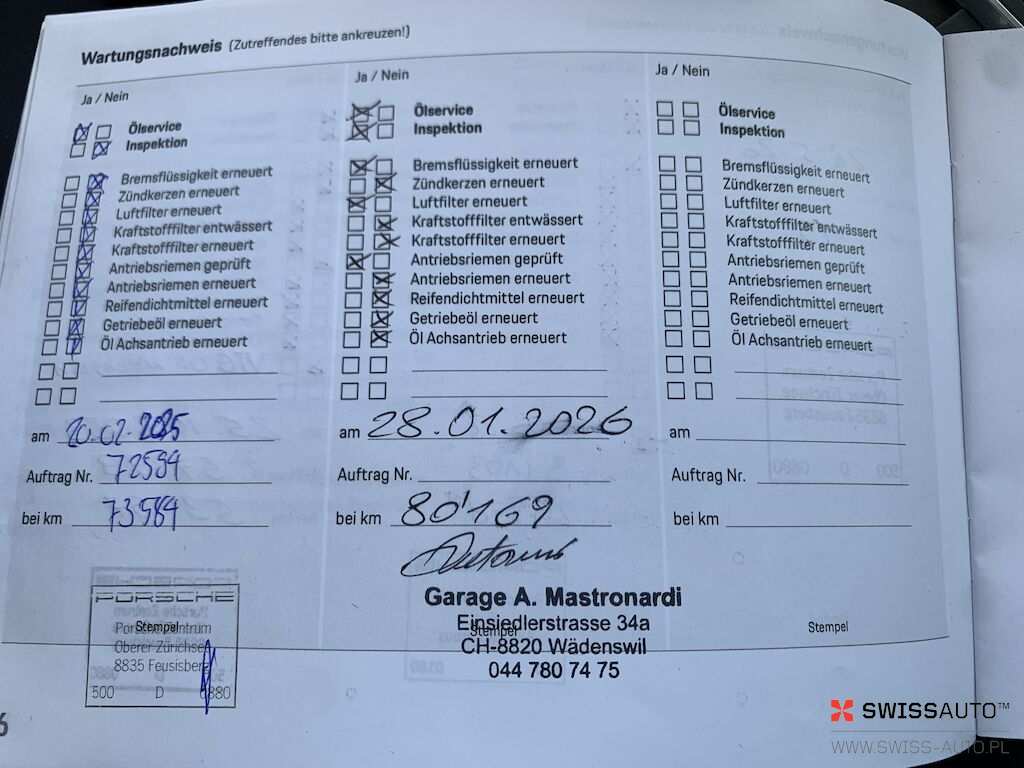 Wartungsnachweis (Zutreffendes bitte ankreuzen!)
Ja / Nein
Ölservice
Inspektion
Bremsflüssigkeit erneuert
Zündkerzen erneuert
Luftfilter erneuert
Kraftstofffilter entwässert
Kraftstofffilter erneuert
Antriebsriemen geprüft
Antriebsriemen erneuert
Reifendichtmittel erneuert
Getriebeöl erneuert
Öl Achsantrieb erneuert
am 20.02.2025
Auftrag Nr. 72594
bei km 73584
PORSCHE
Porsche Zentrum
Stempel
Oberer Zürichsee
8835 Feusisberg
500 D 0880
Ja / Nein
Ölservice
Inspektion
Bremsflüssigkeit erneuert
Zündkerzen erneuert
Luftfilter erneuert
Kraftstofffilter entwässert
Kraftstofffilter erneuert
Antriebsriemen geprüft
Antriebsriemen erneuert
Reifendichtmittel erneuert
Getriebeöl erneuert
Öl Achsantrieb erneuert
am 28.01.2026
Auftrag Nr.
bei km 80'169
Garage A. Mastronardi
Einsiedlerstrasse 34a
Stempel
CH-8820 Wädenswil
044 780 74 75
Ja / Nein
Ölservice
Inspektion
Bremsflüssigkeit erneuert
Zündkerzen erneuert
Luftfilter erneuert
Kraftstofffilter entwässert
Kraftstofffilter erneuert
Antriebsriemen geprüft
Antriebsriemen erneuert
Reifendichtmittel erneuert
Getriebeöl erneuert
Öl Achsantrieb erneuert
am
Auftrag Nr.
bei km
Stempel
6
SWISSAUTO™
WWW.SWISS-AUTO.PL